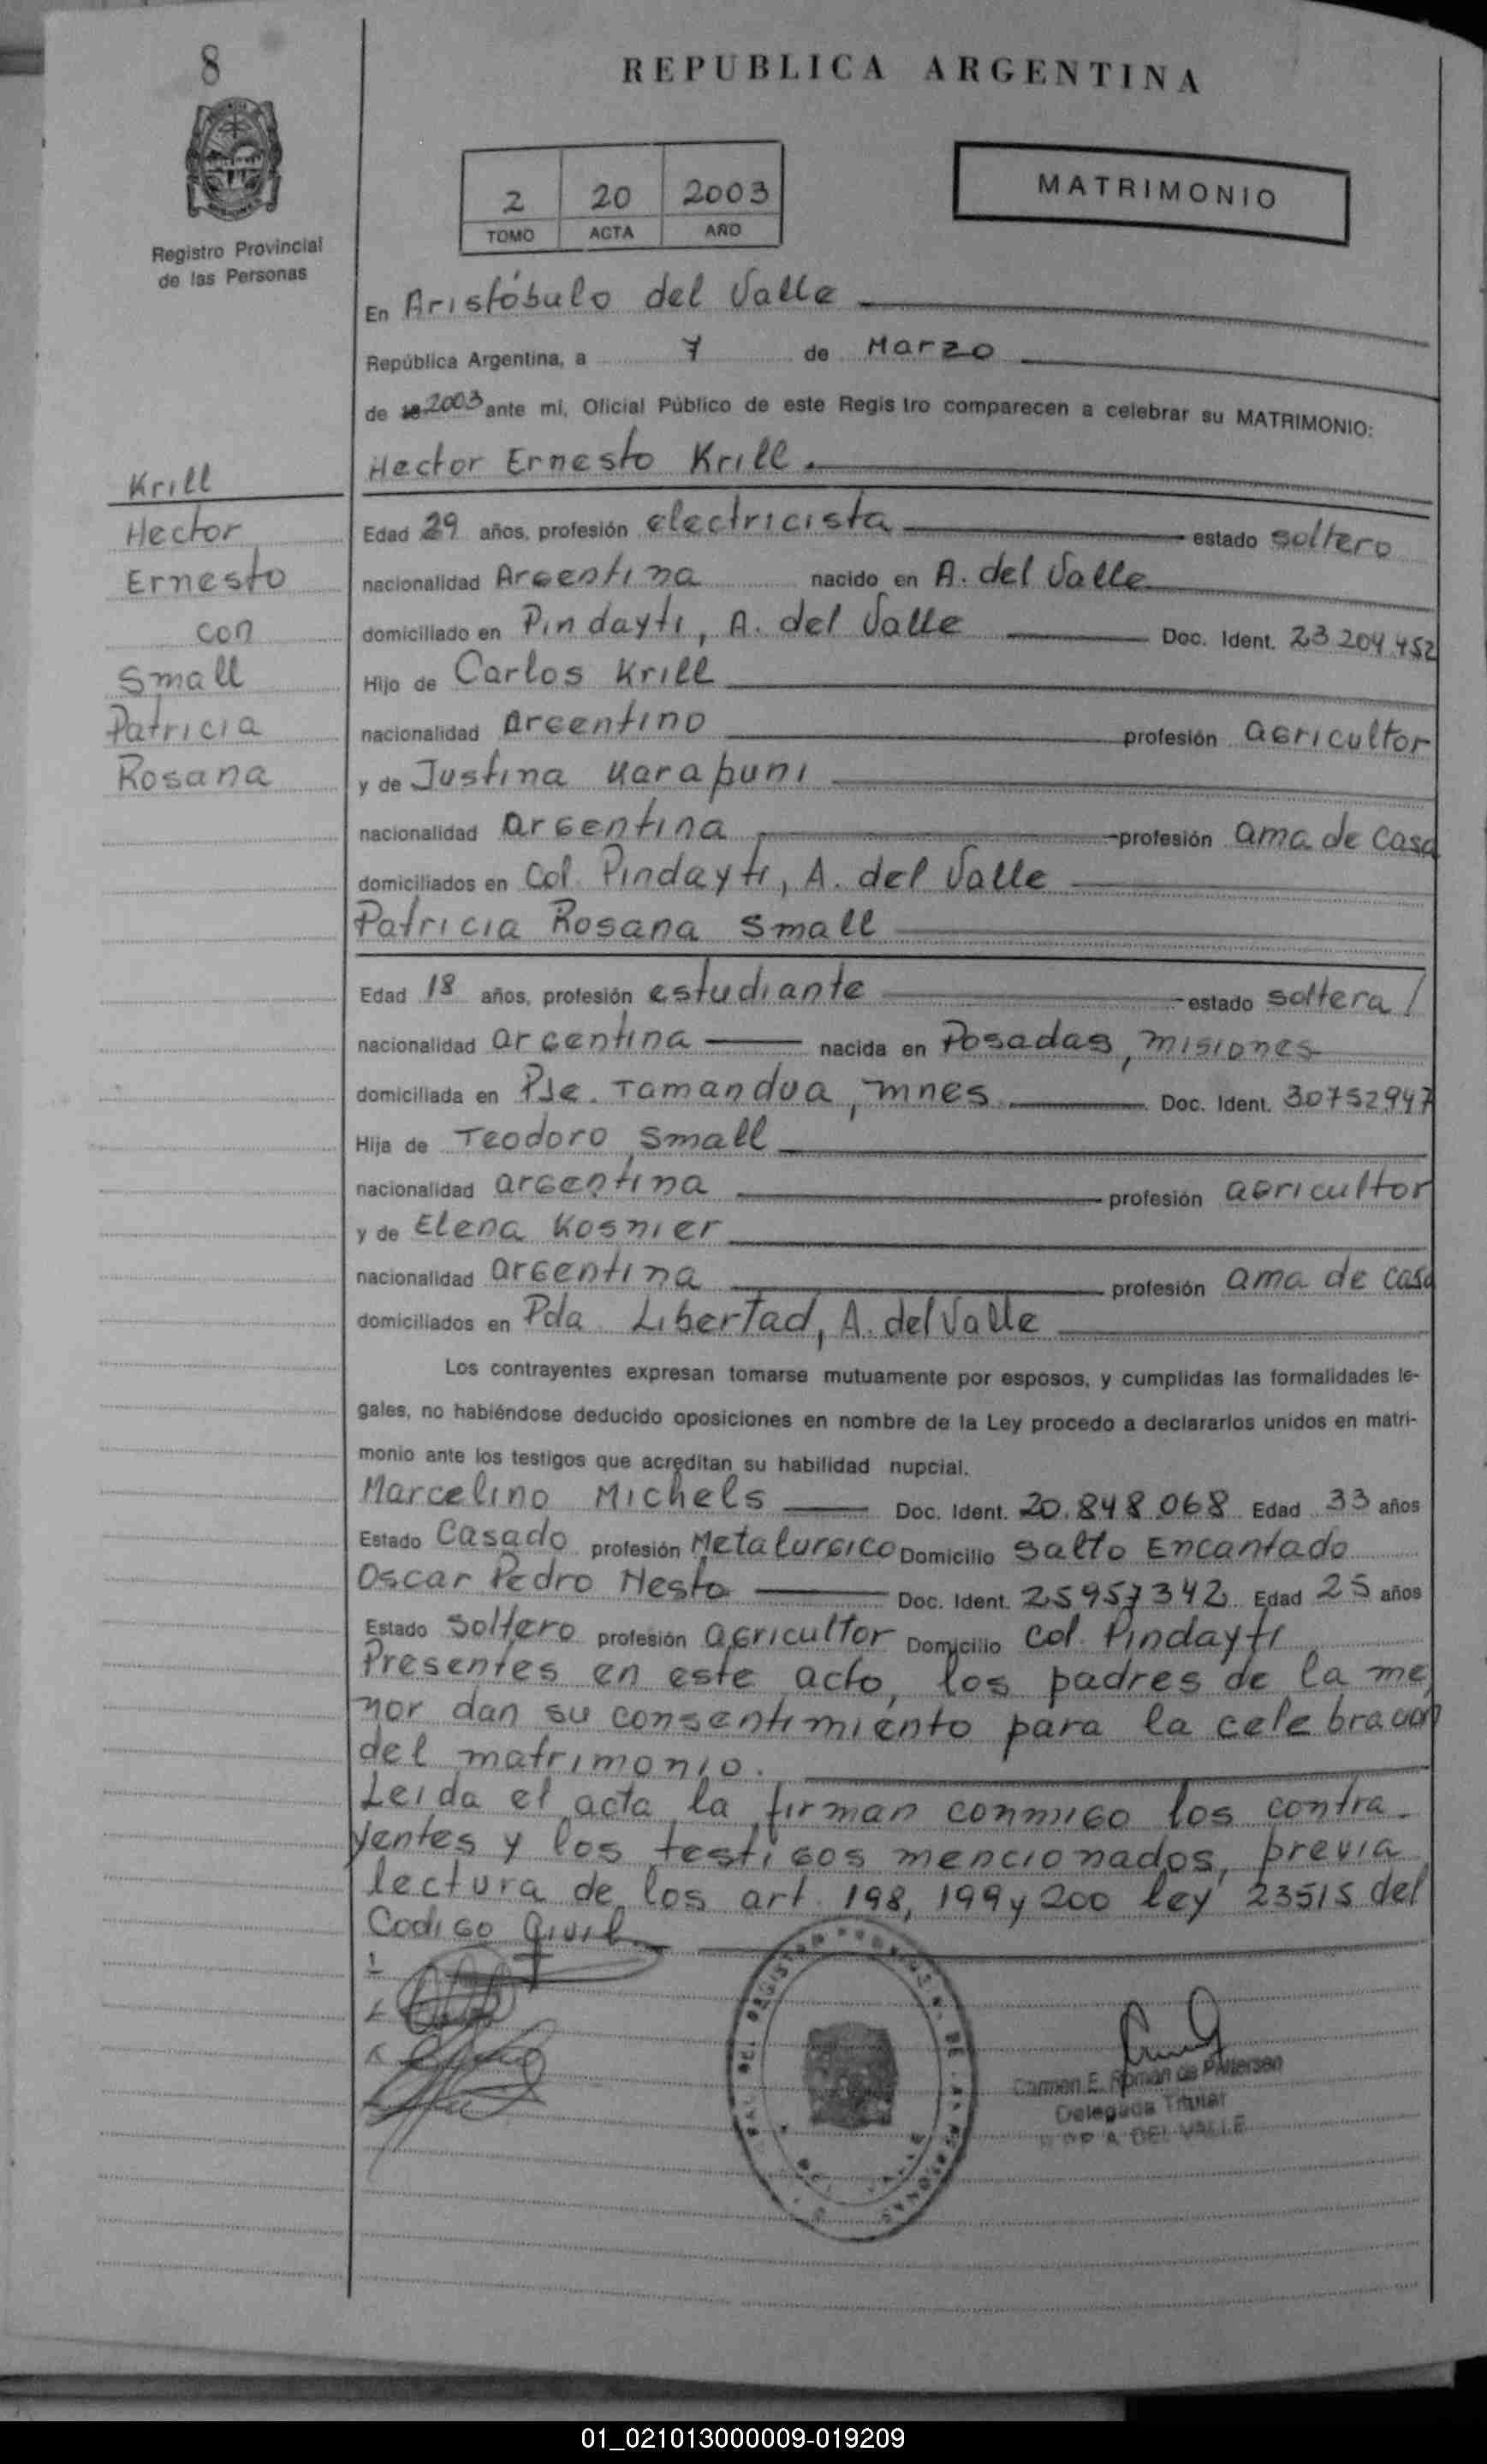 8
REPUBLICA ARGENTINA
2 20 2003
TOMO ACTA AÑO
MATRIMONIO
Registro Provincial
de las Personas
En Aristóbulo del Valle
República Argentina, a 7 de Marzo
de 2003 ante mí, Oficial Público de este Registro comparecen a celebrar su MATRIMONIO:
Hector Ernesto Krill.
Krill
Hector
Ernesto
con
Small
Patricia
Rosana
Edad 29 años, profesión electricista estado soltero
nacionalidad Argentina nacido en A. del Valle
domiciliado en Pindayti, A. del Valle Doc. Ident. 23 204 452
Hijo de Carlos Krill
nacionalidad argentino profesión agricultor
y de Justina Karapuni
nacionalidad argentina profesión ama de casa
domiciliados en Col. Pindayti, A. del Valle
Patricia Rosana Small
Edad 18 años, profesión estudiante estado soltera
nacionalidad argentina nacida en Posadas, misiones
domiciliada en Pje. Tamandua, mnes Doc. Ident. 30752947
Hija de Teodoro Small
nacionalidad argentina profesión agricultor
y de Elena Kosnier
nacionalidad argentina profesión ama de casa
domiciliados en Pda Libertad, A. del Valle
Los contrayentes expresan tomarse mutuamente por esposos, y cumplidas las formalidades le-
gales, no habiéndose deducido oposiciones en nombre de la Ley procedo a declararlos unidos en matri-
monio ante los testigos que acreditan su habilidad nupcial.
Marcelino Michels Doc. Ident. 20.848.068 Edad 33 años
Estado Casado profesión Metalurgico Domicilio Salto Encantado
Oscar Pedro Nesto Doc. Ident. 25957342 Edad 25 años
Estado Soltero profesión agricultor Domicilio Col. Pindayti
Presentes en este acto, los padres de la me
nor dan su consentimiento para la celebracion
del matrimonio.
Leida el acta la firman conmigo los contra-
yentes y los testigos mencionados, previa
lectura de los art. 198, 199 y 200 ley 23515 del
Codigo Civil.
Carmen E. Román de Pettersen
Delegada Titular
A. DEL VALLE
01_021013000009-019209